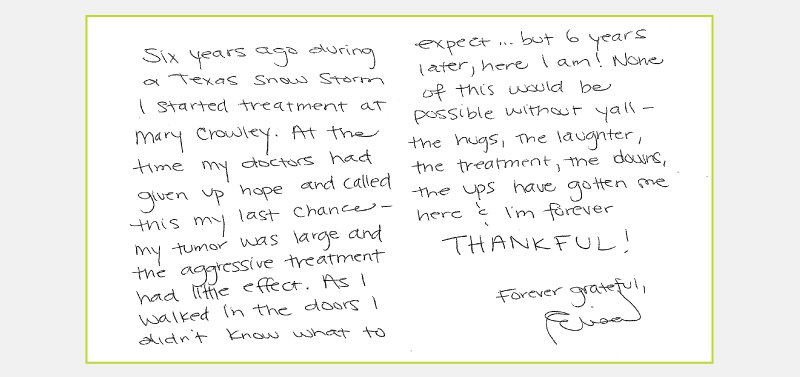 Six years ago during
a Texas snow storm
I started treatment at
Mary Crowley. At the
time my doctors had
given up hope and called
this my last chance -
my tumor was large and
the aggressive treatment
had little effect. As I
walked in the doors I
didn't know what to
expect... but 6 years
later, here I am! None
of this would be
possible without yall -
the hugs, the laughter,
the treatment, the downs,
the ups have gotten me
here & I'm forever
THANKFUL!
Forever grateful,